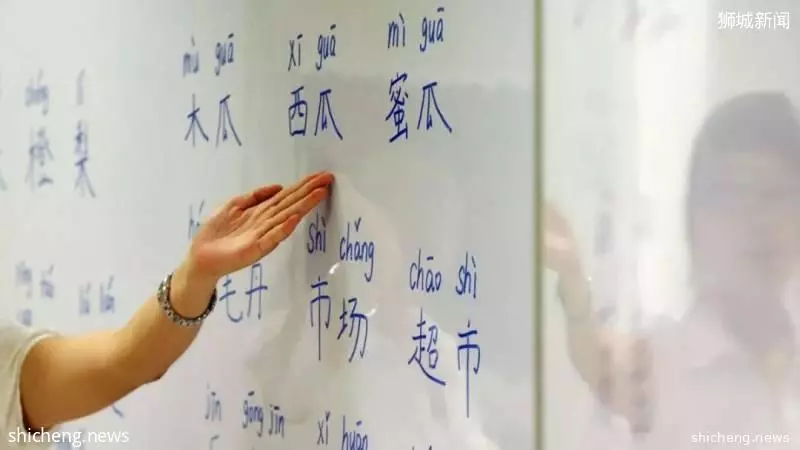 狮城新闻
mù guā xī guā mì guā
橙 梨 木瓜 西瓜 蜜瓜
shì chǎng chāo shì
毛丹 市场 超市
jīn gōng jīn xǐ huān
shicheng.news
shicheng.news